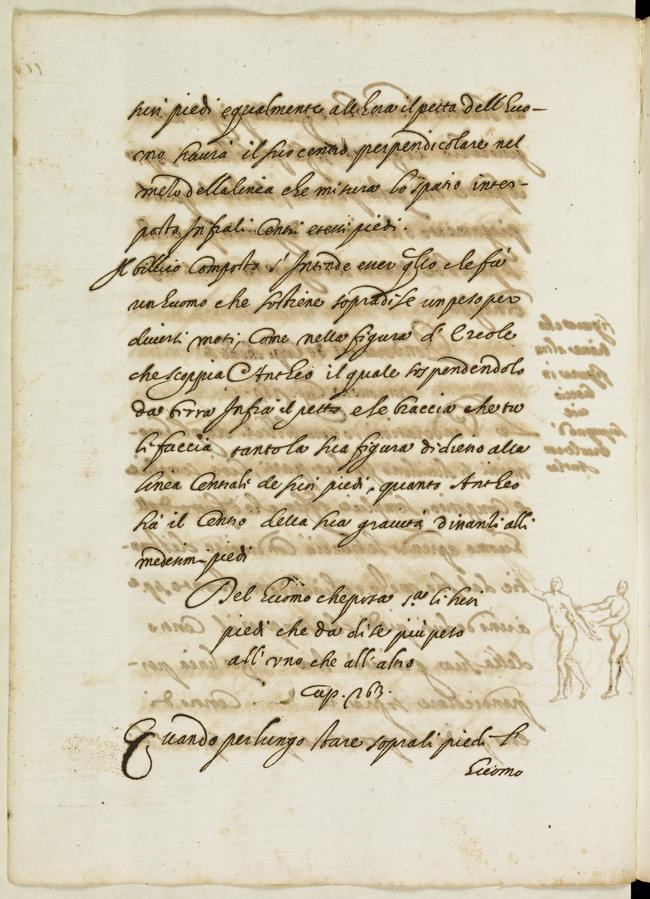 suoi piedi equalmente all'hora il petto dell'huo-
mo haurà il suo centro perpendicolare nel
mezo della linea che misura lo spatio inter-
posto infra li Centri d'essi piedi.
Il billico Composto s'intende esser q̃llo che fà
un huomo che sostiene sopra di se un peso per
diuersi moti, Come nella figura d'Ercole
che scoppia Antheo il quale sospendendolo
da terra Infra il petto, e le braccia che tu
li faccia tanto la sua figura di dietro alla
linea Centrale de suoi piedi, quanto Antheo
hà il Centro della sua grauità dinanti alli
medesimi piedi
Del huomo che posa s.ª li suoi
piedi che da di se più peso
all'uno che all'altro
Cap. 263.
Quando per lungo stare sopra li piedi
huomo